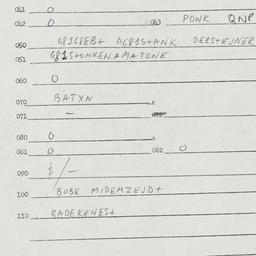 041 0
042 0 2043 POWK QNP
050 G81G8EB+ AG81S+ANK DERS+EJNER
051 G81S+ONKENAMATONE
060 0
070 BATXN
071 –
080 0
061 0 082 0
090 $/–
100 BOBE MIDEMZEJD+
110 BADEKENES+